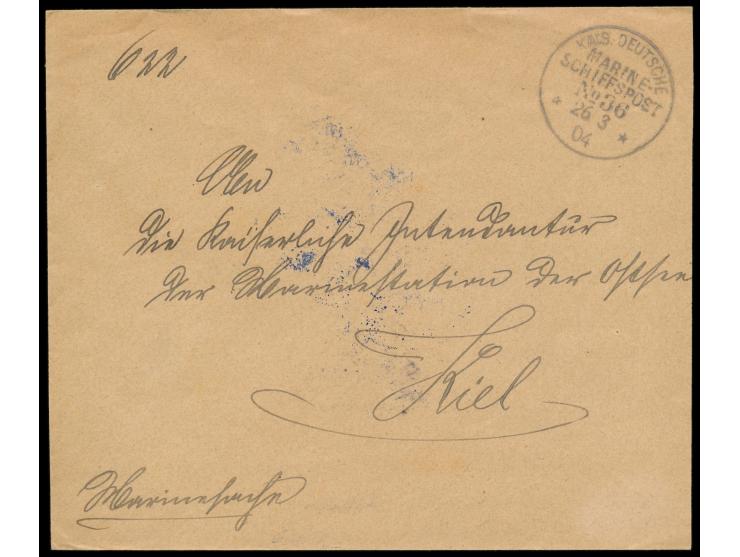 622
KAIS. DEUTSCHE
MARINE-
SCHIFFSPOST
No 36
* 26 3 *
04
An
die Kaiserliche Intendantur
der Marinestation der Ostsee
Kiel
Marinesache